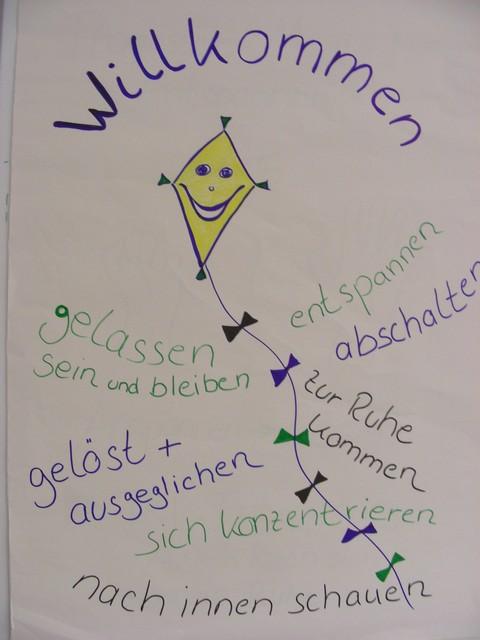 Willkommen
entspannen
abschalten
gelassen
sein und bleiben
zur Ruhe
kommen
gelöst +
ausgeglichen
sich konzentrieren
nach innen schauen